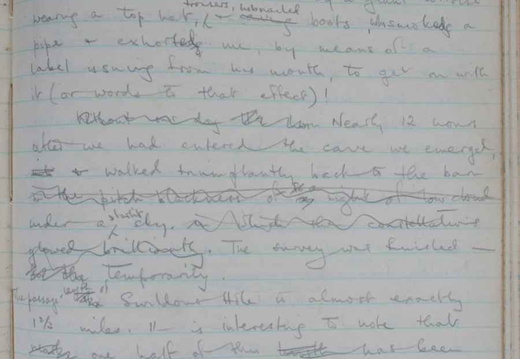 trousers, hobnailed
wearing a top hat, boots, smoked a
pipe & exhorted me, by means of a
label issuing from his mouth, to get on with
it (or words to that effect)!
Nearly 12 hours
after we had entered the cave we emerged,
& walked triumphantly back to the barn
in the pitch blackness of a night of low cloud
under a starlit sky, in which the constellations
glowed brilliantly. The survey was finished —
temporarily.
The passage
Swildons Hole is almost exactly
1⅓ miles. It is interesting to note that
one half of this has been